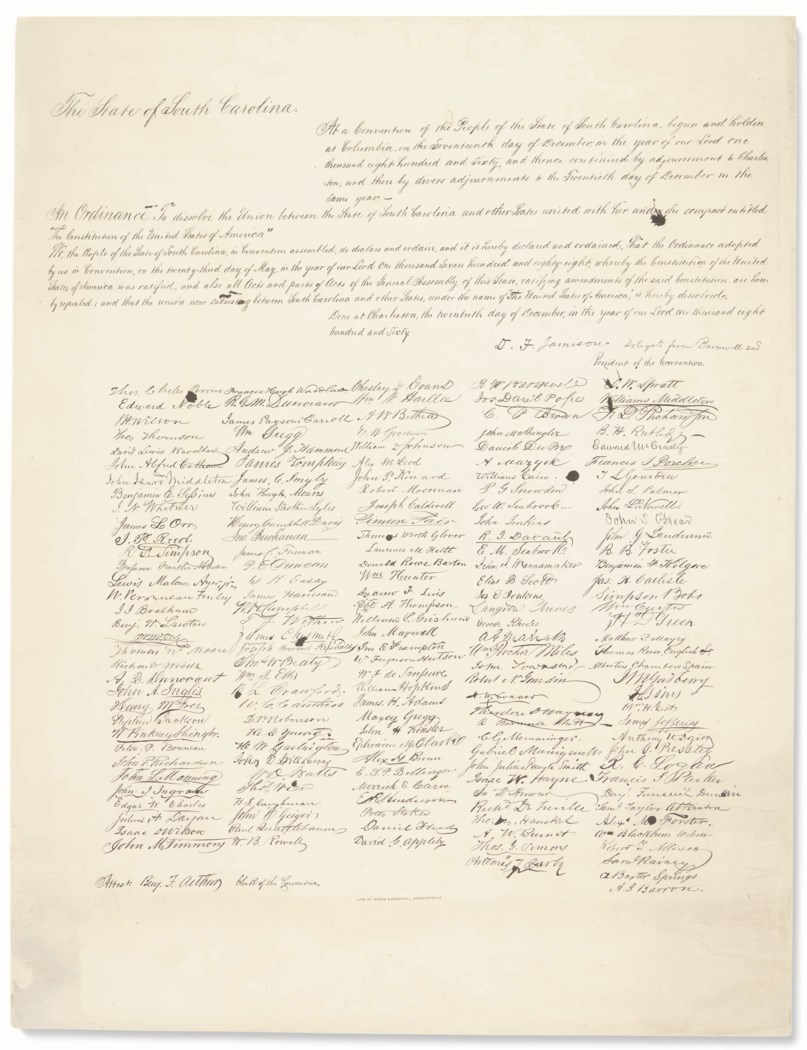 The State of South Carolina.
At a Convention of the People of the State of South Carolina, begun and holden
at Columbia, on the Seventeenth day of December, in the year of our Lord one
thousand eight hundred and Sixty, and thence continued by adjournment to Charles-
ton, and there by divers adjournments to the Twentieth day of December in the
same year –
An Ordinance To dissolve the Union between the State of South Carolina and other States united with her under the compact entitled
"The Constitution of the United States of America"
We, the People of the State of South Carolina, in Convention assembled, do declare and ordain, and it is hereby declared and ordained, That the Ordinance adopted
by us in Convention, on the twenty-third day of May, in the year of our Lord one thousand Seven hundred and eighty-eight, whereby the Constitution of the United
States of America was ratified, and also all Acts and parts of Acts of the General Assembly of this State, ratifying amendments of the said Constitution, are here-
by repealed; and that the union now subsisting between South Carolina and other States, under the name of "The United States of America," is hereby dissolved.
Done at Charleston, the twentieth day of December, in the year of our Lord one thousand eight
hundred and Sixty
D. F. Jamison Delegate from Barnwell and
President of the Convention
Thos Chiles Perrin Francis Hugh Wardlaw Chesley D. Evans L. W. Spratt
Edward Noble R. G. M. Dunovant Wm W. Harllee Williams Middleton
J. H. Wilson James Parsons Carroll A. W. Bethea C. P. Brown
Thos Thomson Wm Gregg E. W. Goodwin John M Shingler B. H. Rutledge
David Lewis Wardlaw Andrew J. Hammond William D. Johnson Daniel DuPre Edward McCrady
John Alfred Calhoun James Tompkins Alex McLeod A Mazyck Francis J. Porcher
John Izard Middleton James C. Smyly John P. Kinard William Cain T. L. Gourdin
Benjamin E. Sessions John Hugh Means Robert Moorman P. G. Snowden John S. Palmer
J. N. Whitner William Strother Lyles Joseph Caldwell Geo W. Seabrook John L. Nowell
James L. Orr Henry Campbell Davis Simeon Fair John Jenkins John S. O'Hear
J. P. Reed Jno. Buchanan Thomas Worth Glover R. J. Davant John G. Landrum
R. F. Simpson James C. Furman Lawrence M. Keitt E. M. Seabrook B. B. Foster
Benjamin Franklin Mauldin P. E. Duncan Donald Rowe Barton John J. Wannamaker Benjamin F. Kilgore
Lewis Malone Ayer, Jr. W. K. Easley Wm Hunter Elias B. Scott Jas. H. Carlisle
W. Peronneau Finley James Harrison Andrew F. Lewis Jos E. Jenkins Simpson Bobo
J. J. Brabham W. H. Campbell Robt A. Thompson Langdon Cheves Wm Curtis
Benj. W. Lawton T. J. Withers William S. Grisham George Rhodes H. D. Green
James Chesnut Jr. John Maxwell A. G. Magrath Matthew P. Mayes
Thomas W. Moore Joseph Brevard Kershaw Jno E. Frampton Wm Porcher Miles Thomas Reese English, Sr
Richard Woods Thos W. Beaty W. Ferguson Hutson John Townsend Albertus Chambers Spain
A. Q. Dunovant Wm J. Ellis W. F. de Saussure Robert N. Gourdin J. M. Gadberry
John A. Inglis R. L. Crawford William Hopkins H. W. Conner J. S. Sims
Henry McIver W. C. Cauthen James H. Adams Theodore D. Wagner Wm H. Gist
Stephen Jackson D. P. Robinson Maxcy Gregg R. Barnwell Rhett James Jefferies
W. Pinkney Shingler H. C. Young John H. Kinsler C. G. Memminger Anthony W. Dozier
Peter P. Bonneau H. W. Garlington Ephraim M. Clark Gabriel Manigault John G. Pressley
John P. Richardson John D. Williams Alex H. Brown John Julius Pringle Smith R. C. Logan
John L. Manning W. D. Watts E. S. P. Bellinger Isaac W. Hayne Francis S. Parker
John J. Ingram Thos Wier Merrick E. Carn Jn H. Honour Benj. Faneuil Dunkin
Edgar W. Charles H. I. Caughman E. R. Henderson Richd DeTreville Saml Taylor Atkinson
Julius A. Dargan John C. Geiger Peter Stokes Thos M. Hanckel Alex M. Forster
Isaac D. Wilson Paul Quattlebaum Daniel Flud A. W. Burnet Wm Blackburn Wilson
John M. Timmons W. B. Rowell David C. Appleby Thos. Y. Simons Robert T. Allison
Artemas T. Darby Saml Rainey
A. Baxter Springs
A. I. Barron.
Attest: Benj. F. Arthur Clerk of the Convention.